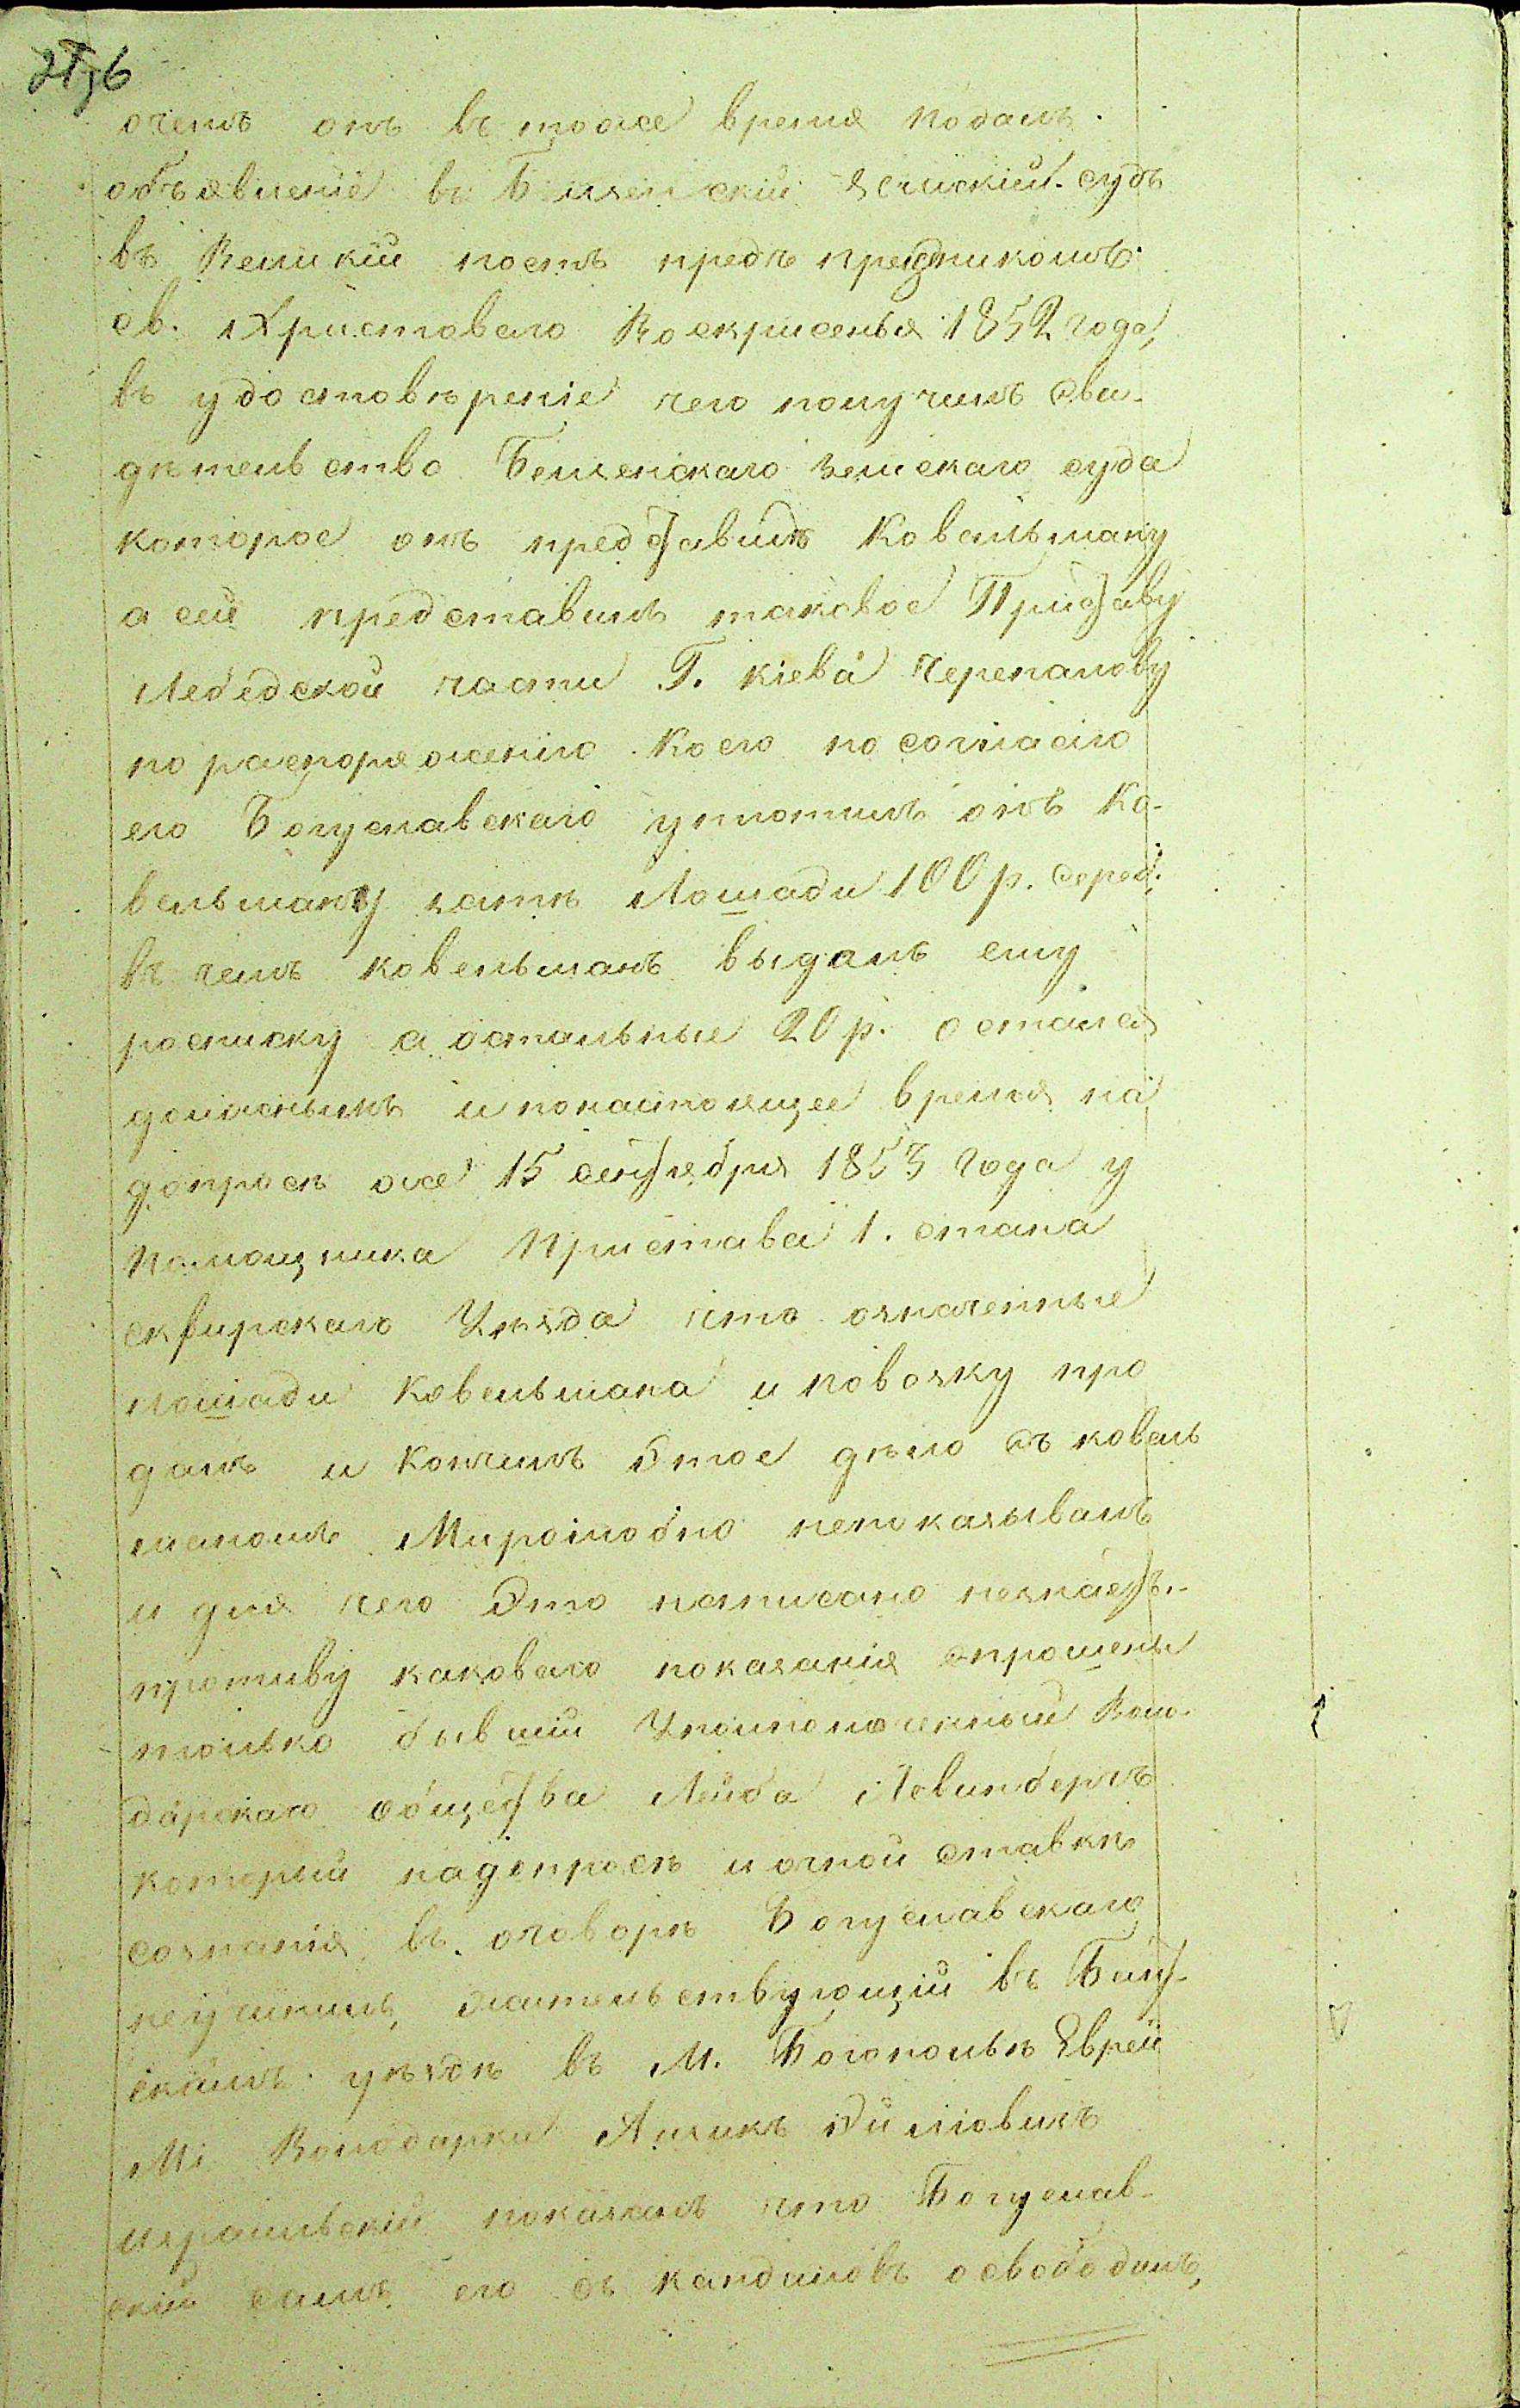 очемъ онъ въ тоже время подалъ
объявленіе въ Бѣленскій Земскій судъ
въ Великій постъ предъ праздникомъ
св. Христоваго Воскрисенья 1852 года,
въ удостовѣреніе чего получилъ сви-
дѣтельство Беленскаго Земскаго суда
которое онъ представилъ Ковельману
а сей представилъ таковое Приставу
Лебедской части Г. Кіева Черепанову
по распоряженію коего по согласію
его Богуславскаго уплотилъ онъ Ко-
вельману затѣ Лошади 100 р. сереб.
въ чемъ ковельманъ выдалъ ему
росписку а остальные 20 р. остался
долженымъ и понастоящее время на
допросѣ же 15 сентября 1853 года у
помощника Пристава 1. стана
сквирскаго Уѣзда что означенные
лошади Ковельмана и повозку про
далъ и кончилъ Этое дѣло съ ковель
маномъ Миролюбно непоказывалъ
и для чего Это написано незнаетъ.
противу каковаго показанія спрошены
только бывшій Уполномоченный Воло-
дарскаго общества Лейба Левинбергъ
который надопросѣ и очной ставкѣ
сознанія въ оговорѣ Богуславскаго
неучинилъ, жительствующій въ Балт-
скомъ уѣздѣ въ М. Богополѣ Еврей
М. Володарки Айзикъ
показалъ что Богуслав-
скій самъ его съ кандаловъ освободилъ,